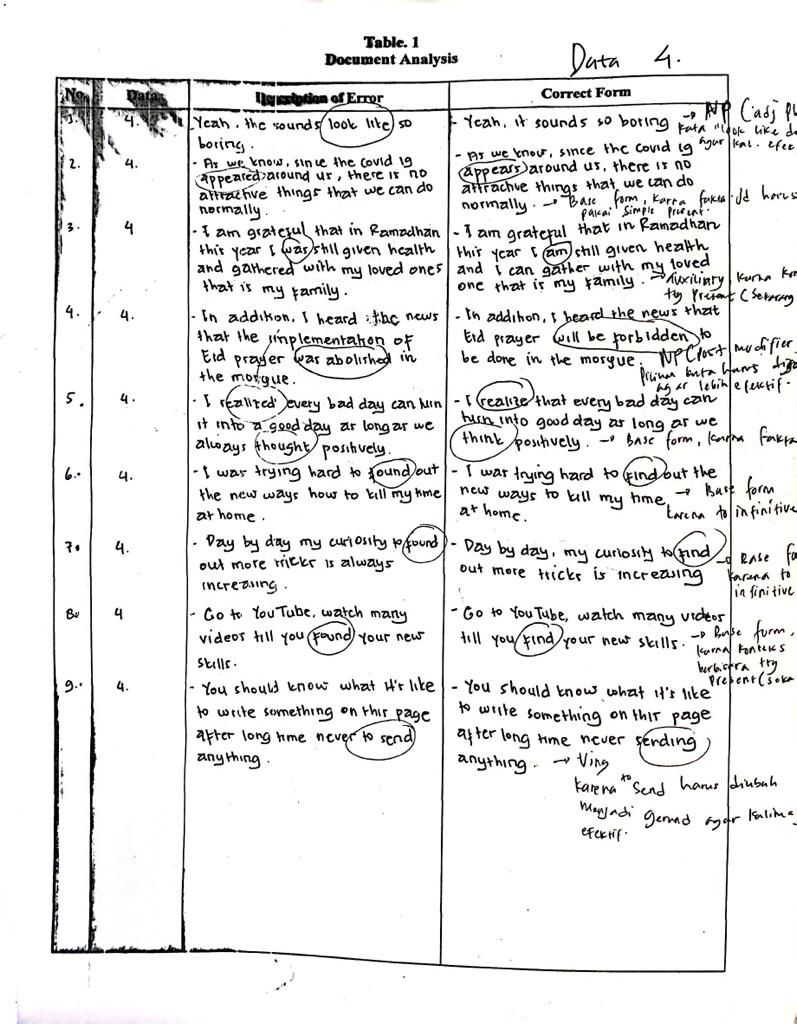 Table. 1
Document Analysis
Data 4.
No. Data Description of Error Correct Form
1. 4. - Yeah, the sounds look like so
boring.
- Yeah, it sounds so boring → NP (adj
kata "look like
agar kal. efek
2. 4. - As we know, since the covid 19
appeared around us, there is no
attractive things that we can do
normally.
- As we know, since the covid 19
appears around us, there is no
attractive things that we can do
normally. → Base form, karna fakta jd harus
pakai simple present.
3. 4 - I am grateful that in Ramadhan
this year I was still given health
and gathered with my loved ones
that is my family.
- I am grateful that in Ramadhan
this year I am still given health
and I can gather with my loved
one that is my family. → Auxiliary karna
ttg Present (Sekarang
4. 4. - In addition, I heard the news
that the implementation of
Eid prayer was abolished in
the mosque.
- In addition, I heard the news that
Eid prayer will be forbidden to
be done in the mosque. NP (Post modifier
kata harus
agar lebih efektif.
5. 4. - I realized every bad day can turn
it into a good day as long as we
always thought positively.
- I realize that every bad day can
turn into good day as long as we
think positively. → Base form, karna fakta
6. 4. - I was trying hard to found out
the new ways how to kill my time
at home.
- I was trying hard to find out the
new ways to kill my time → Base form
at home. karena to infinitive
7. 4. - Day by day my curiosity to found
out more tricks is always
increasing.
- Day by day, my curiosity to find
out more tricks is increasing → Base fo
karena to
infinitive
8. 4 - Go to YouTube, watch many
videos till you found your new
skills.
- Go to YouTube, watch many videos
till you find your new skills. → Base form,
karna konteks
berbicara ttg
Present (
9. 4. - You should know what it's like
to write something on this page
after long time never to send
anything.
- You should know what it's like
to write something on this page
after long time never sending
anything. → Ving
karena to Send harus diubah
menjadi gerund agar kalima
efektif.